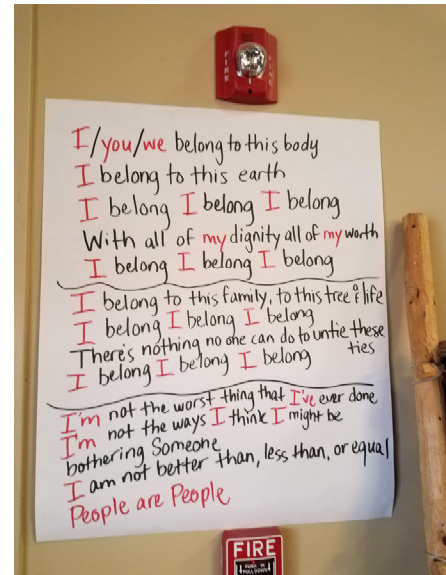 FIRE
FIRE
I/you/we belong to this body
I belong to this earth
I belong I belong I belong
With all of my dignity all of my worth
I belong I belong I belong
I belong to this family, to this tree of life
I belong I belong I belong
There's nothing no one can do to untie these
ties
I belong I belong I belong
I'm not the worst thing that I've ever done
I'm not the ways I think I might be
bothering someone
I am not better than, less than, or equal
People are People
FIRE
PUSH IN
PULL DOWN